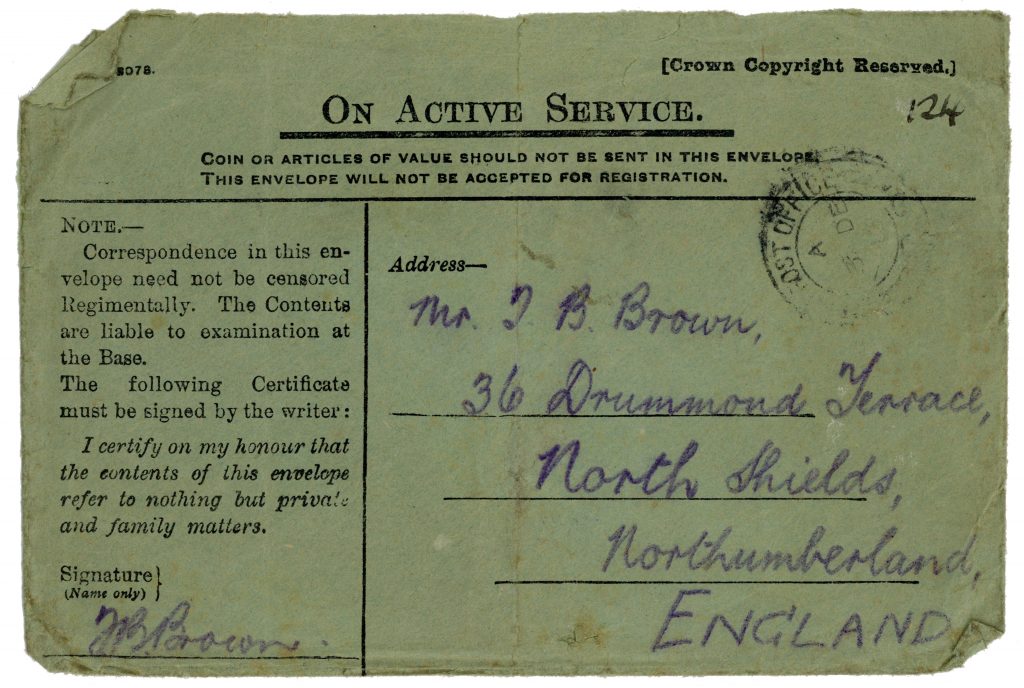 3078.
[Crown Copyright Reserved.]
124
ON ACTIVE SERVICE.
COIN OR ARTICLES OF VALUE SHOULD NOT BE SENT IN THIS ENVELOPE.
THIS ENVELOPE WILL NOT BE ACCEPTED FOR REGISTRATION.
POST OFFICE
A
DE
NOTE.—
Correspondence in this en-
velope need not be censored
Regimentally. The Contents
are liable to examination at
the Base.
The following Certificate
must be signed by the writer:
I certify on my honour that
the contents of this envelope
refer to nothing but private
and family matters.
Signature}
(Name only)
JBBrown.
Address—
Mr. J. B. Brown,
36 Drummond Terrace,
North Shields,
Northumberland,
ENGLAND